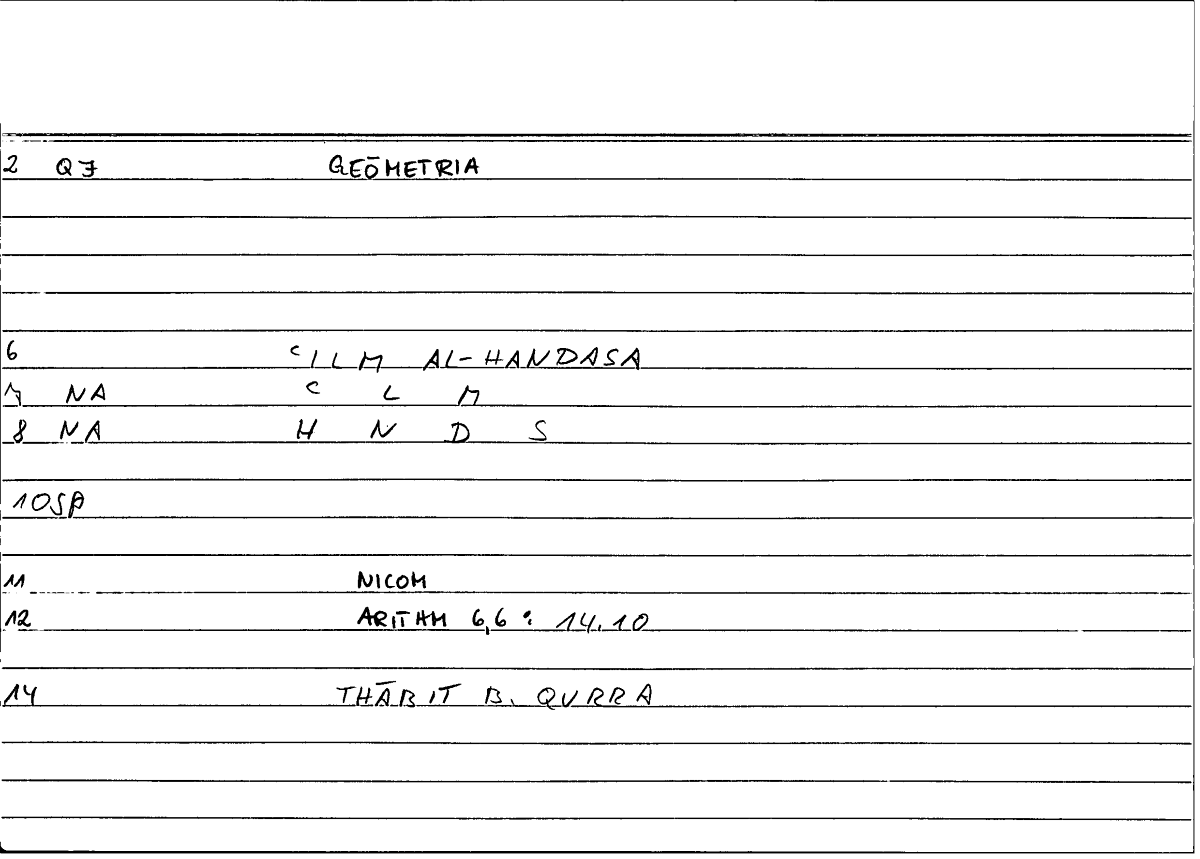 2 Q7 GEŌMETRIA
6 ʿILM AL-HANDASA
7 NA ʿ L M
8 NA H N D S
10SA
11 NICOM
12 ARITHM 6,6 : 14.10
14 THĀBIT B. QURRA